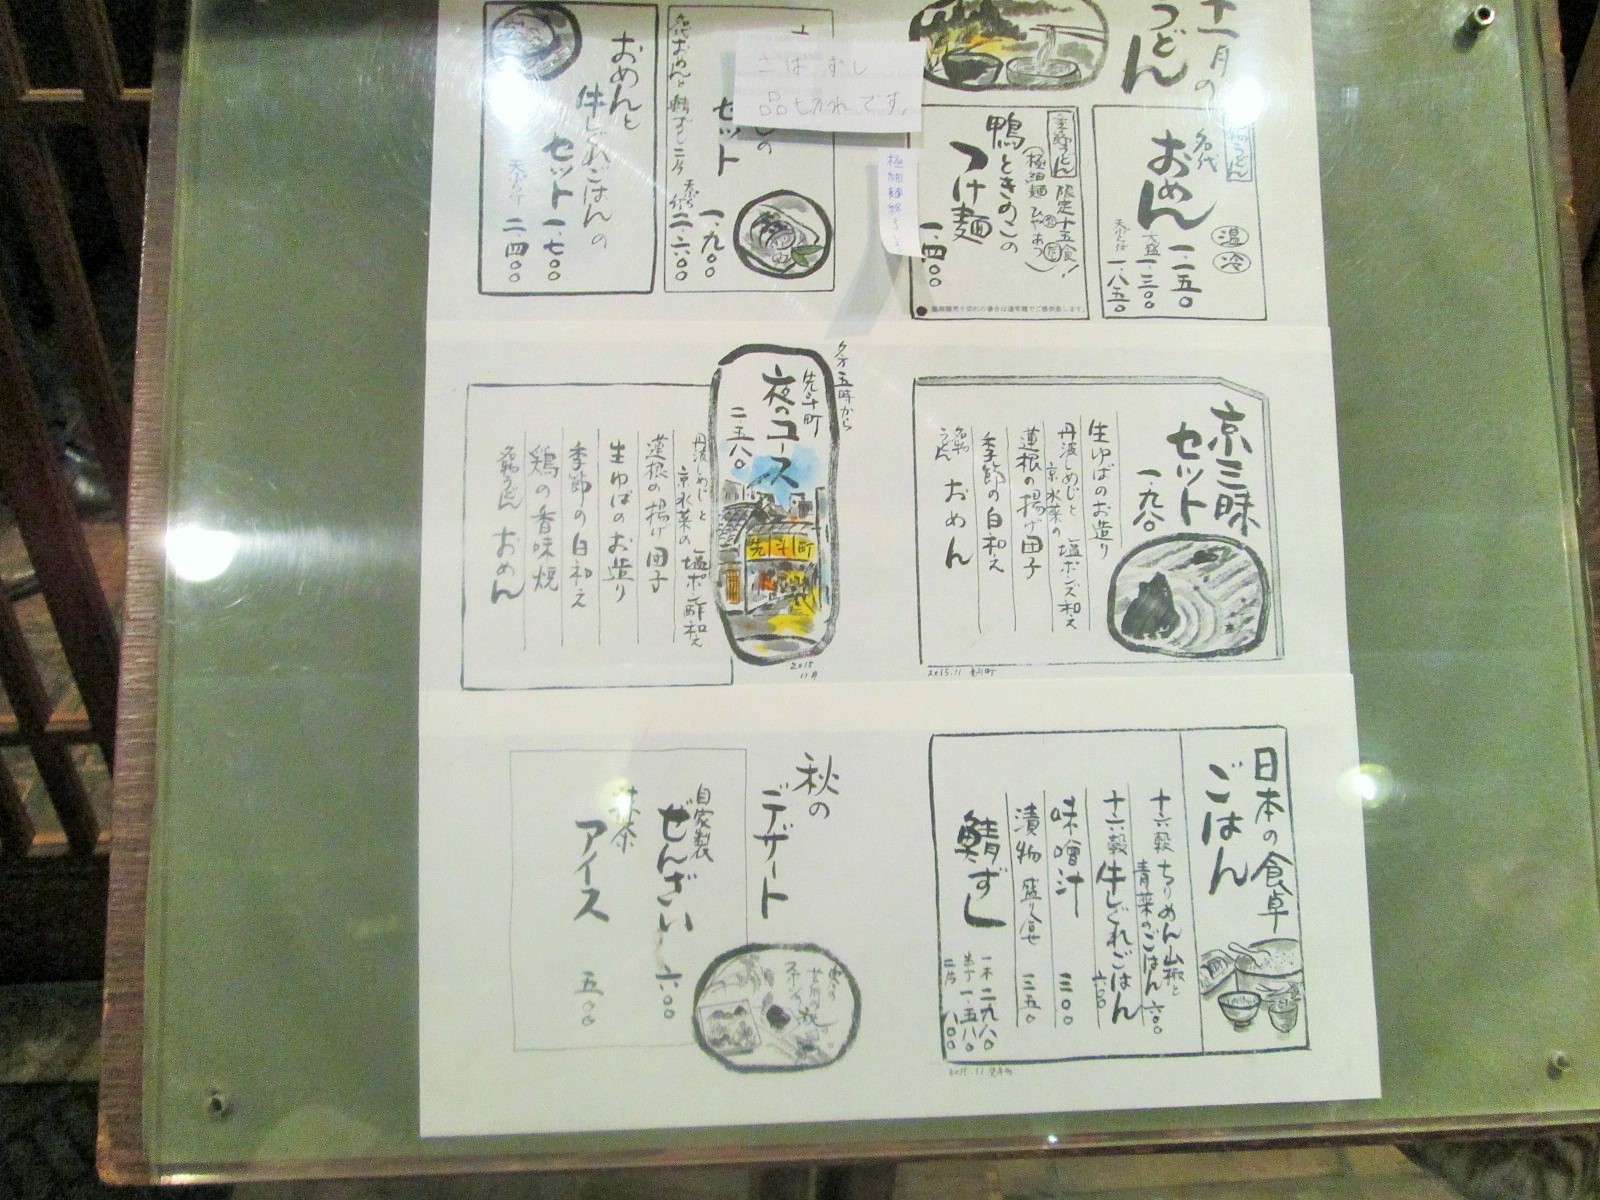 十一月の
うどん
名代
おめん
温
冷
一・一五〇
大盛
一・三〇〇
天ぷら付
一・八五〇
季節うどん
限定十五食！
鴨ときのこの
つけ麺
一・四〇〇
●極細麺売り切れの場合は通常麺でご提供致します。
さばずし
品切れです。
セット
名代おめんと鯖ずし二片
一・九〇〇
二・六〇〇
おめんと
牛しぐれごはんの
セット
一・七〇〇
天ぷら付
二・四〇〇
京三昧
セット
一・九八〇
生ゆばのお造り
丹波しめじと
京水菜の
塩ポンズ和え
蓮根の揚げ団子
季節の白和え
名物
うどん
おめん
2015.11 先斗町
夕方五時から
先斗町
夜のコース
二・五八〇
先斗町
2015
11月
丹波しめじと
京水菜の
塩ポン酢和え
蓮根の揚げ団子
生ゆばのお造り
季節の白和え
鶏の香味焼
名物うどん
おめん
日本の食卓
ごはん
十六穀
ちりめん山椒と
青菜のごはん
六〇〇
十六穀
牛しぐれごはん
六〇〇
味噌汁
三〇〇
漬物
盛り合せ
三五〇
鯖ずし
一本
二・九八〇
半丁
一・五八〇
二片
八〇〇
2015.11 先斗町
秋の
デザート
自家製
ぜんざい
六〇〇
抹茶
アイス
五〇〇